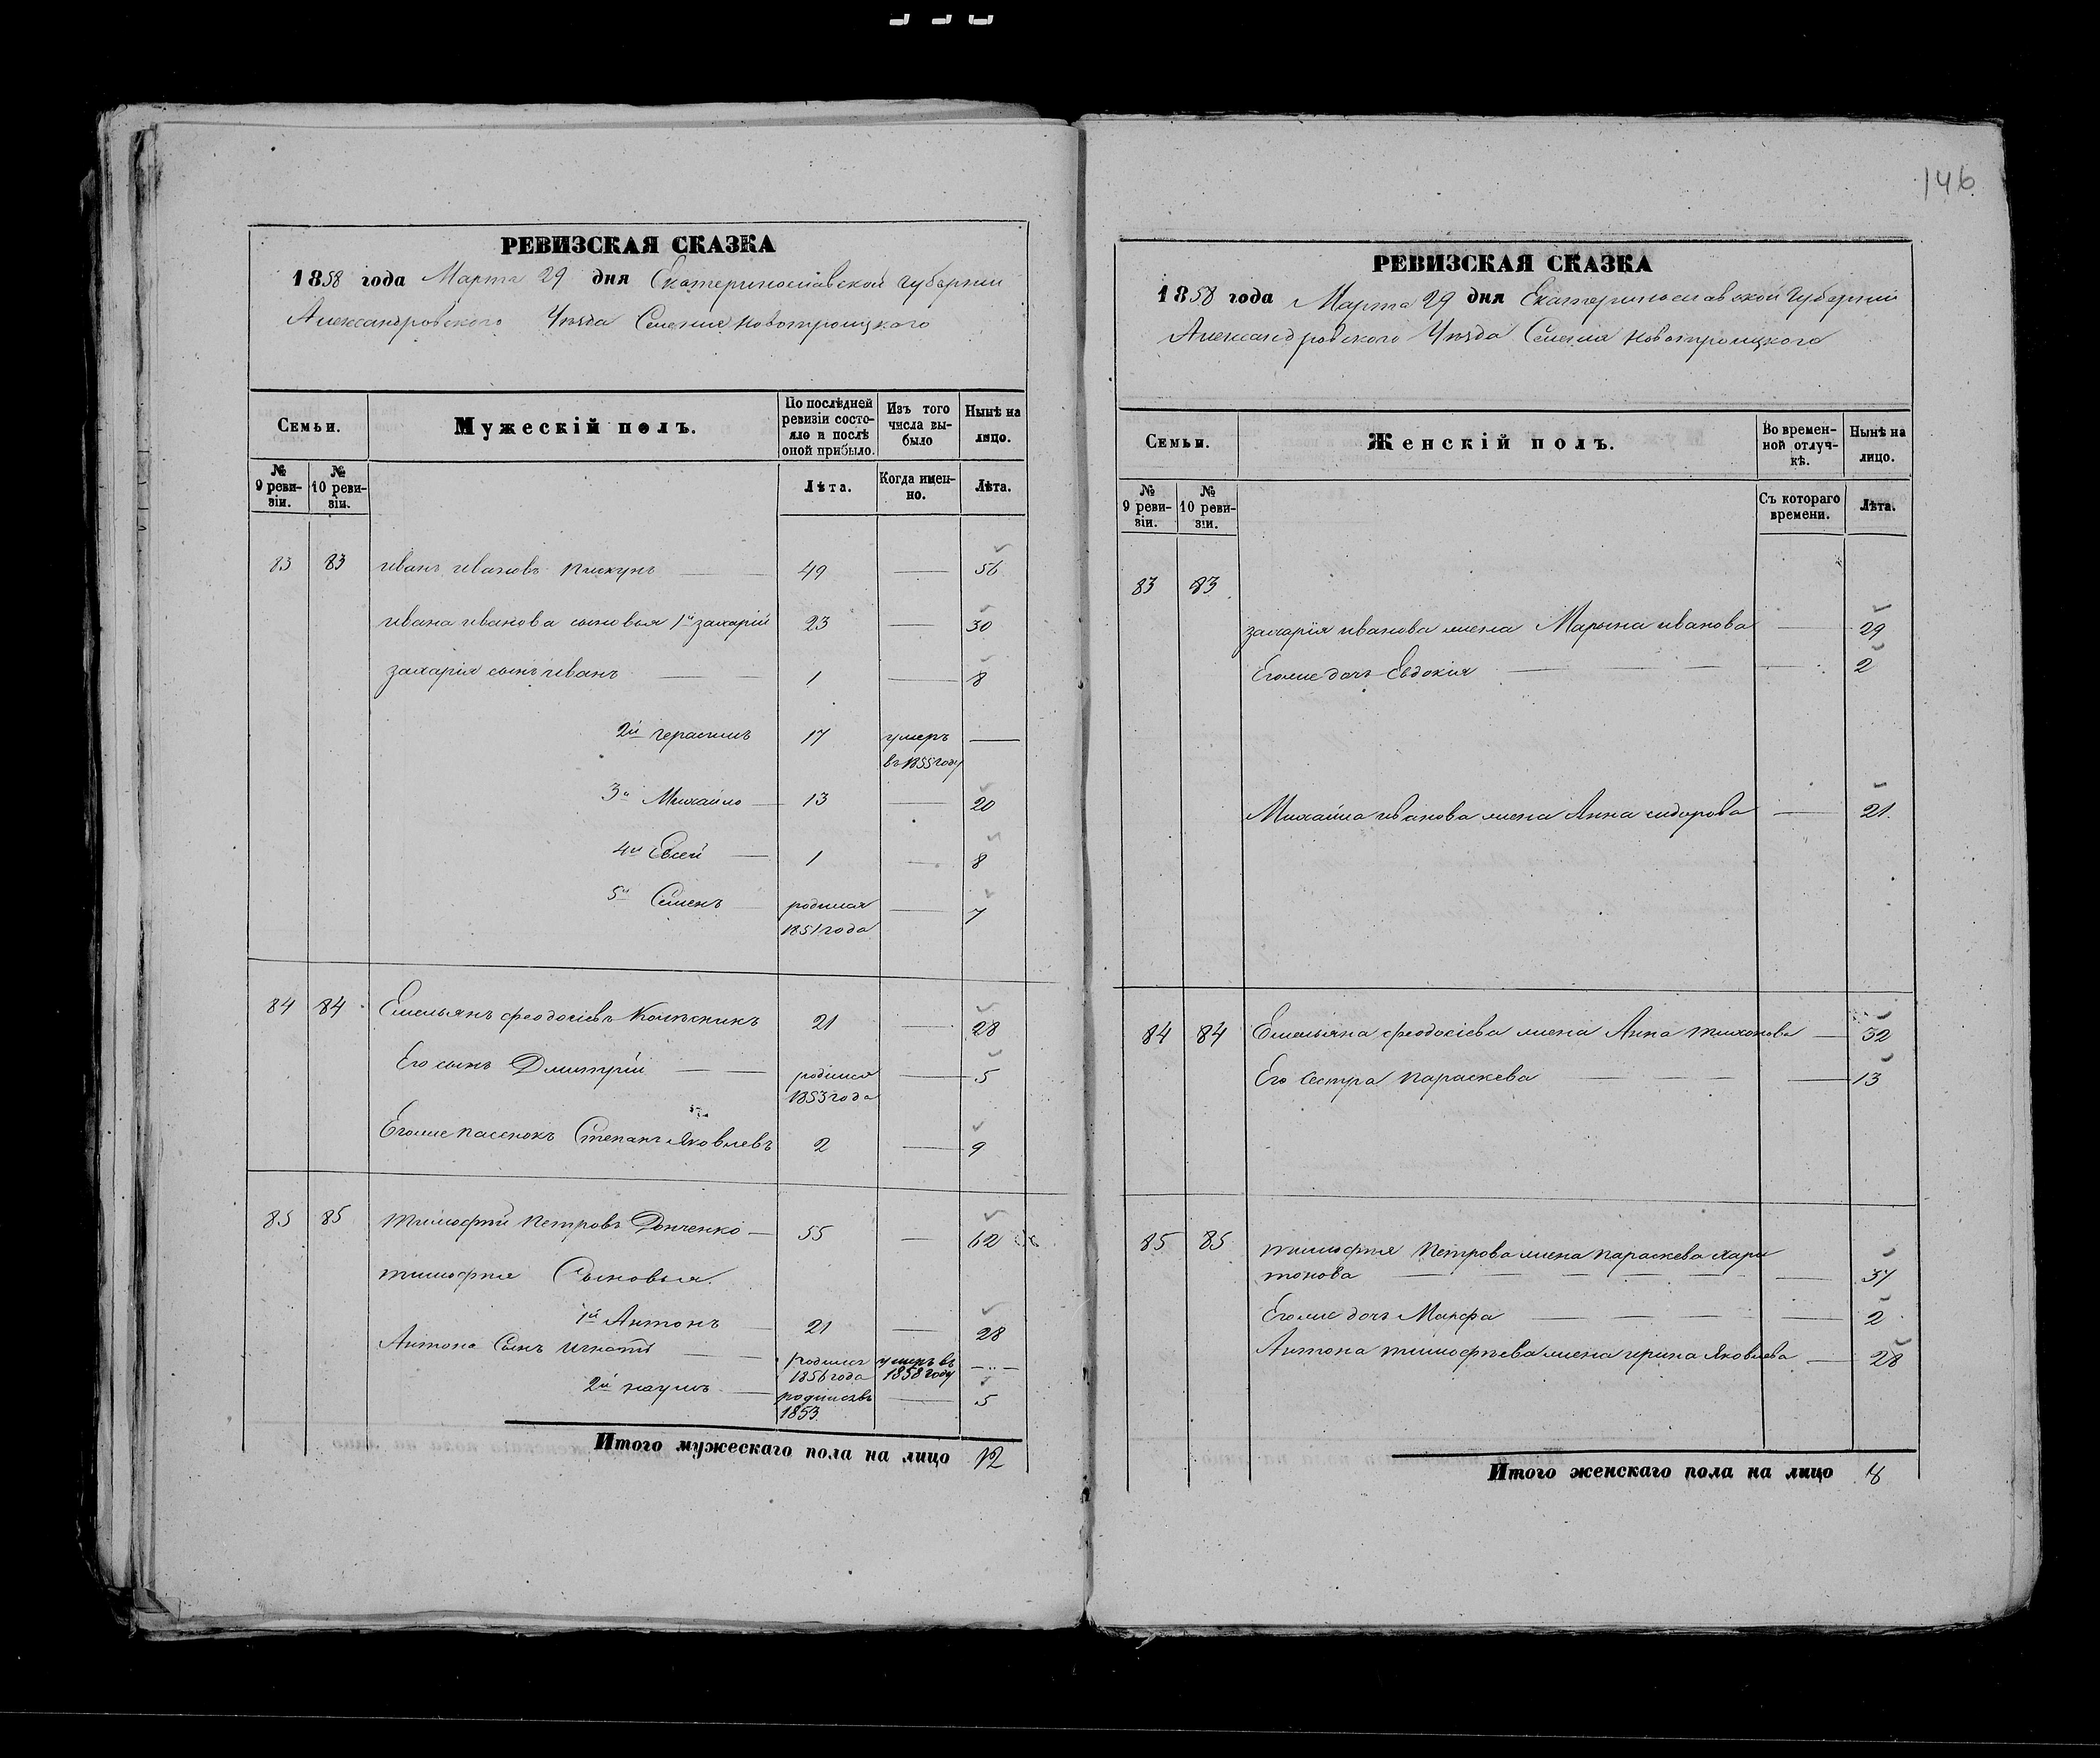 РЕВИЗСКАЯ СКАЗКА
1858 года Марта 29 дня Екатеринославской Губернии
Александровского Уѣзда Селения Новотроицкого
Семьи.
Мужескій полъ.
По послѣдней ревизіи состояло и послѣ оной прибыло.
Изъ того числа выбыло
Нынѣ на лицо.
№ 9 ревизіи.
№ 10 ревизіи.
Лѣта.
Когда именно.
Лѣта.
83 83 иванъ ивановъ пискунъ 49 — 56
ивана иванова сыновья 1й захарій 23 — 30
захарія сынъ иванъ 1 — 8
2й герасимъ 17 умеръ —
въ 1855 году
3й Михайло 13 — 20
4й Евсей 1 — 8
5й Семенъ родился — 7
1851 года
84 84 Емельянъ феодосіевъ Колѣсникъ 21 — 28
Его сынъ Дмитрій родился — 5
1853 года
Егоже пасенокъ Степанъ Яковлевъ 2 — 9
85 85 тимофѣй петровъ Донченко 55 — 62
тимофѣя Сыновья.
1й Антонъ 21 — 28
Антона Сынъ игнатъ родился умеръ въ —
1856 года 1858 году
2й наумъ родился въ — 5
1853
Итого мужескаго пола на лицо 12
146
РЕВИЗСКАЯ СКАЗКА
1858 года Марта 29 дня Екатеринославской Губерніи
Александровского Уѣзда Селения Новотроицкого
Семьи.
Женскій полъ.
Во временной отлучкѣ.
Нынѣ на лицо.
№ 9 ревизіи.
№ 10 ревизіи.
Съ котораго времени.
Лѣта.
83 83
захарія иванова жена Марьина иванова — 29
Егоже дочь Евдокія — 2
Михайла иванова жена Анна сидорова — 21.
84 84 Емельяна феодосіева жена Анна тихонова — 32
Его Сестра параскева — 13
85 85 тимофѣя Петрова жена параскева хари
тонова — 37
Егоже дочь Марфа — 2
Антона тимофѣева жена ирина Яковлева — 28
Итого женскаго пола на лицо 8